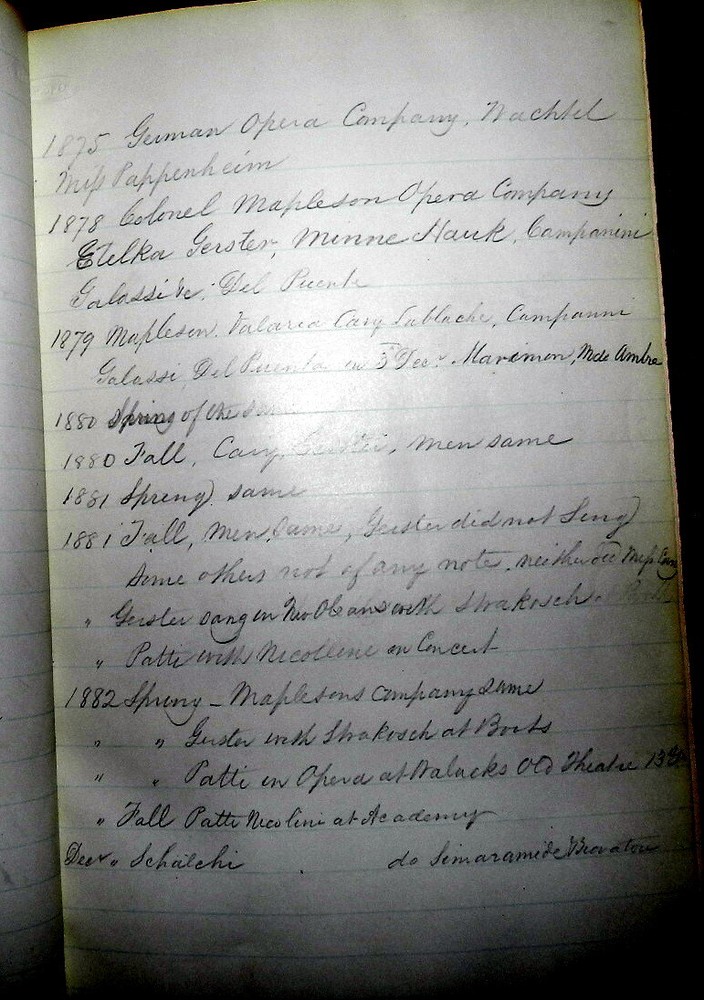 1875 German Opera Company, Wachtel
Miss Pappenheim
1878 Colonel Mapleson Opera Company
Etelka Gerster, Minne Hauk, Campanini
Galassi &c. Del Puente
1879 Mapleson. Valaria Cary Lablache, Campanni
Galassi, Del Puenta in Decr. Marimon, Mde Ambre
1880 Spring of the same
1880 Fall, Cary, Gerster, men same
1881 Spreng) same
1881 Fall, men same, Gerster did not Sing)
Some others not of any note, neither did Miss Cary
" Gerster sang in New Orleans with Strakosch
" Patti with Nicolline in Concert
1882 Spring - Maplesons company same
" " Gerster with Strakosch at Booths
" " Patti in Opera at Walacks Old Theatre 13
" Fall Patti Nicolini at Academy
Decr " Schalchi do Simaramide